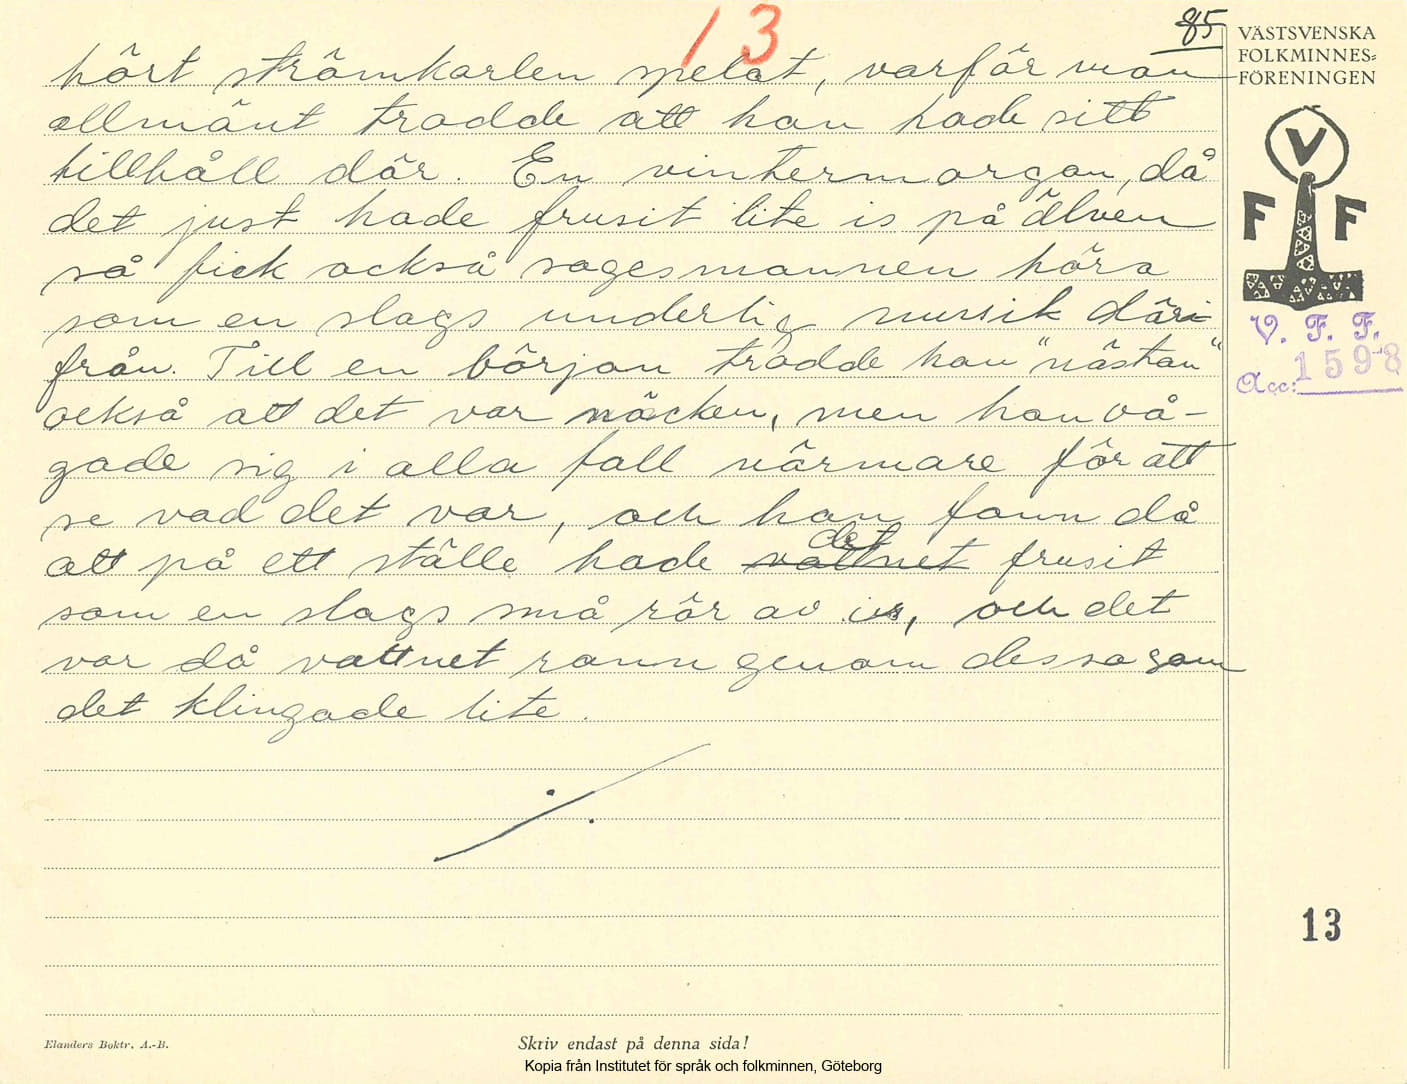 13
85
hört strömkarlen spelat, varför man
allmänt trodde att han hade sitt
tillhåll där. En vintermorgon, då
det just hade frusit lite is på älven
så fick också sagesmannen höra
som en slags underlig mussik däri-
från. Till en början trodde han "nästan"
också att det var näcken, men han vå-
gade sig i alla fall närmare för att
se vad det var, och han fann då
att på ett ställe hade vattnet det frusit
som en slags små rör av is, och det
var då vattnet rann genom dessa som
det klingade lite.
VÄSTSVENSKA
FOLKMINNES=
FÖRENINGEN
V
F F
V. F. F.
Acc: 1598
13
Elanders Boktr. A.-B.
Skriv endast på denna sida!
Kopia från Institutet för språk och folkminnen, Göteborg